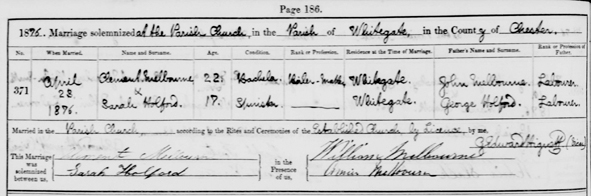 Page 186.
1876. Marriage solemnized at the Parish Church, in the Parish of Whitegate, in the County of Chester.
No. When Married. Name and Surname. Age. Condition. Rank or Profession. Residence at the Time of Marriage. Father's Name and Surname. Rank or Profession of Father.
371 April 23. 1876. Clement Melbourne 22 Bachelor Whitegate. John Melbourne. Labourer.
Sarah Holford. 17. Spinster Whitegate. George Holford. Labourer.
Married in the Parish Church, according to the Rites and Ceremonies of the Established Church, by Licence, by me,
This Marriage was solemnized between us, Sarah Holford in the Presence of us, William Melbourne